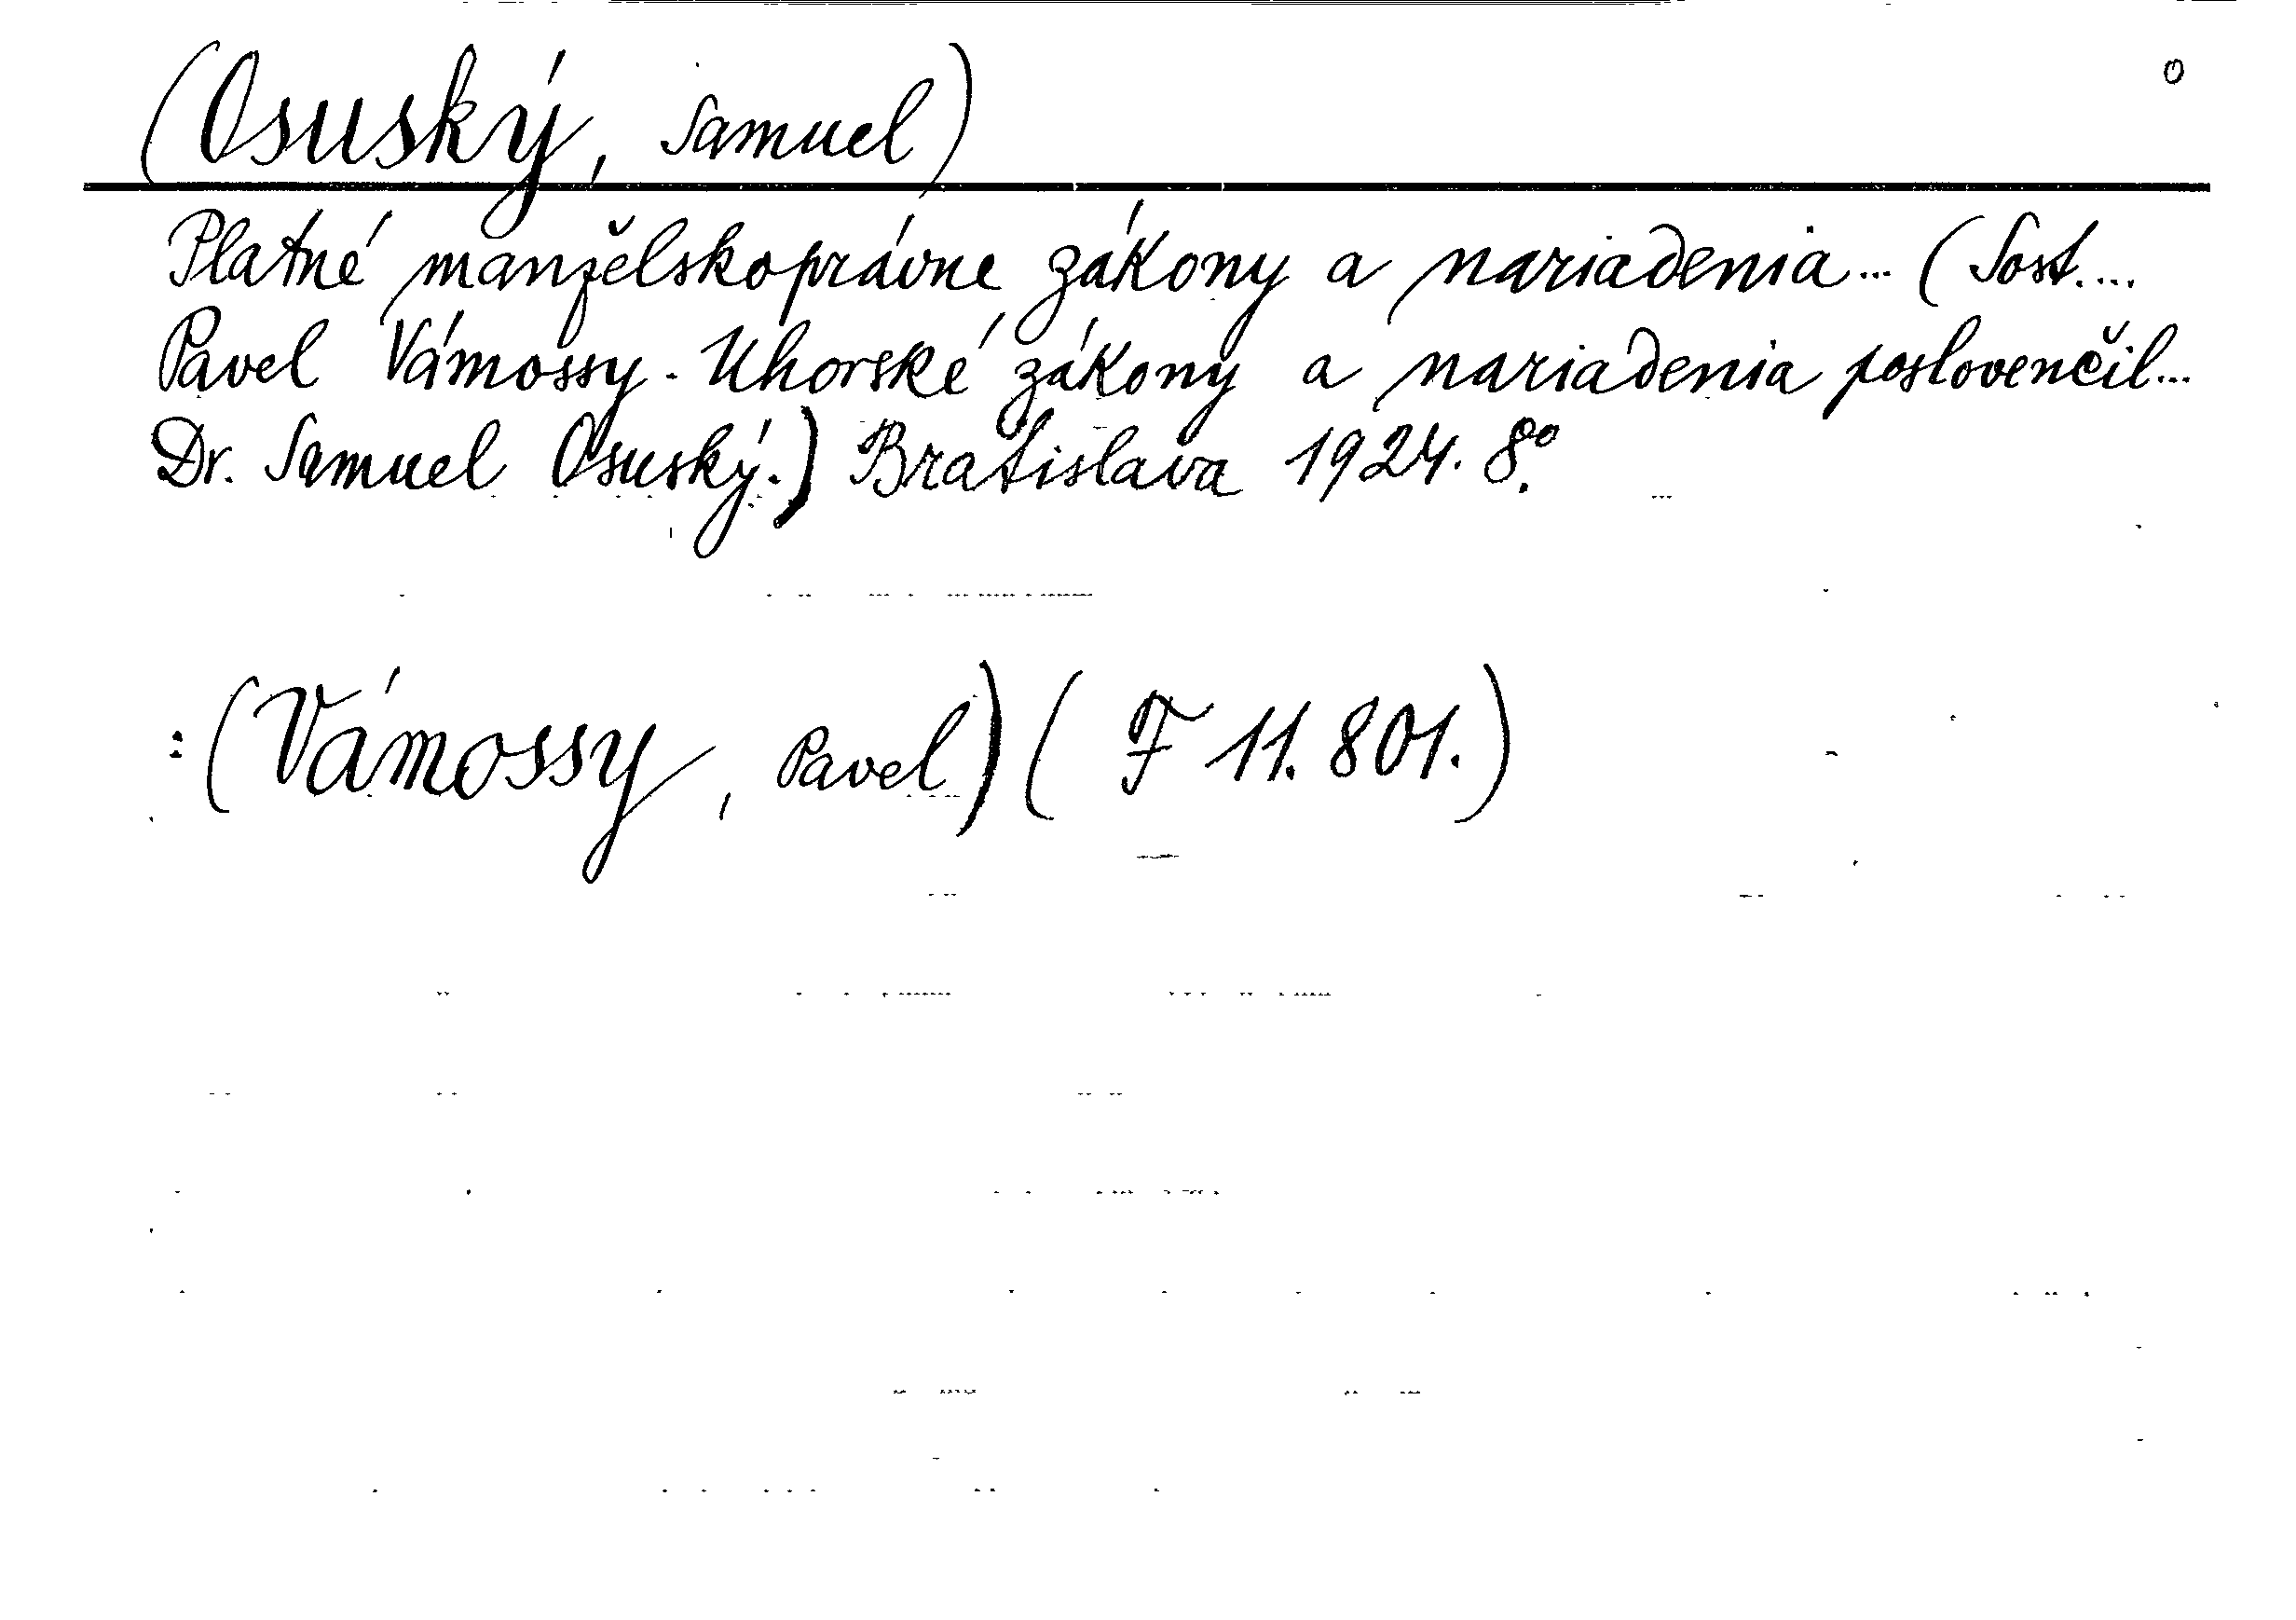 (Osuský, Samuel)
o
Platné manželskoprávne zákony a nariadenia... (Sost....
Pavel Vámossy. Uhorské zákony a nariadenia poslovenčil...
Dr. Samuel Osuský.) Bratislava 1924. 8°.
: (Vámossy, Pavel) (F 11.801.)